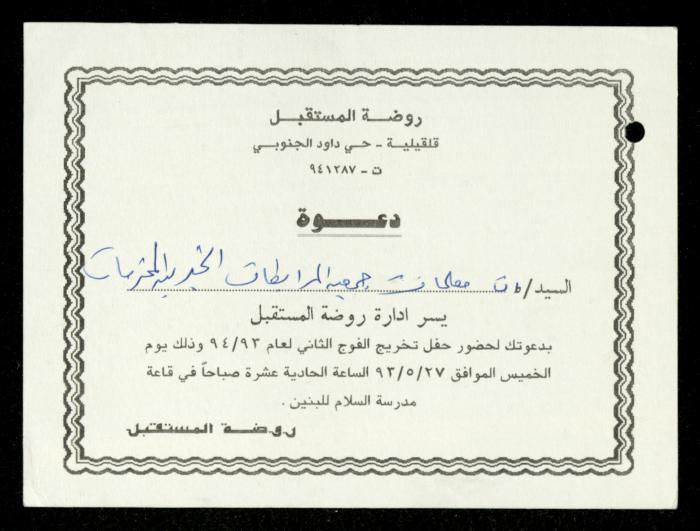 روضة المستقبل
قلقيلية - حي داود الجنوبي
ت - ٩٤١٢٨٧
دعوة
السيد/ات معلمات جمعية المرابطات الخيرية المحترمات
يسر ادارة روضة المستقبل
بدعوتك لحضور حفل تخريج الفوج الثاني لعام ٩٤/٩٣ وذلك يوم
الخميس الموافق ٩٣/٥/٢٧ الساعة الحادية عشرة صباحاً في قاعة
مدرسة السلام للبنين .
روضة المستقبل